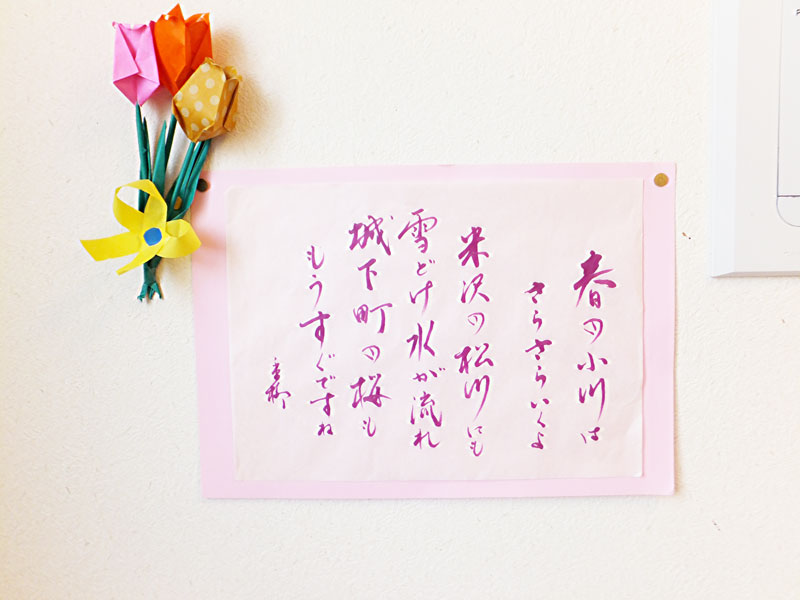 春の小川は
さらさらいくよ
米沢の松川にも
雪どけ水が流れ
城下町の梅も
もうすぐですね